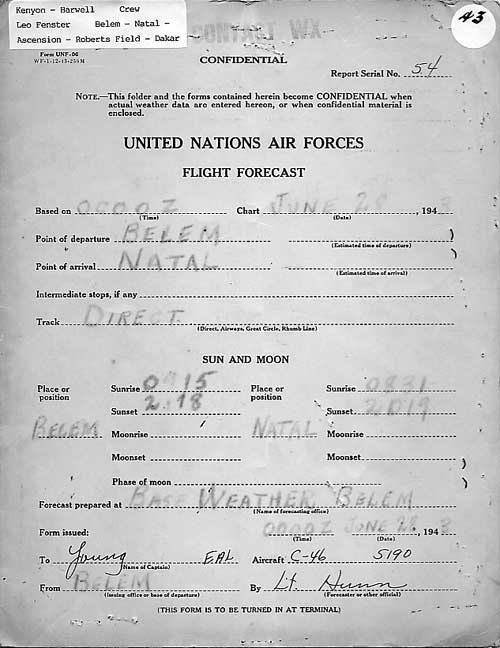 Kenyon - Barwell Crew
Leo Fenster Belem - Natal -
Ascension - Roberts Field - Dakar
43
CONTACT WX
Form UNF-86
CONFIDENTIAL
Report Serial No. 54
NOTE.—This folder and the forms contained herein become CONFIDENTIAL when
actual weather data are entered hereon, or when confidential material is
enclosed.
UNITED NATIONS AIR FORCES
FLIGHT FORECAST
Based on 0000Z Chart JUNE 28, 1943
(Time) (Date)
Point of departure BELEM
(Estimated time of departure)
Point of arrival NATAL
(Estimated time of arrival)
Intermediate stops, if any
Track DIRECT
(Direct, Airways, Great Circle, Rhumb Line)
SUN AND MOON
Place or position Sunrise 0915 Place or position Sunrise 0831
Sunset 2118 Sunset 2019
BELEM Moonrise NATAL Moonrise
Moonset Moonset
Phase of moon
Forecast prepared at BASE WEATHER BELEM
(Name of forecasting office)
Form issued: 0000Z JUNE 28, 1943
(Time) (Date)
To Young EAL Aircraft C-46 5190
(Name of Captain)
From BELEM By Lt. Hunn
(Issuing office or base of departure) (Forecaster or other official)
(THIS FORM IS TO BE TURNED IN AT TERMINAL)